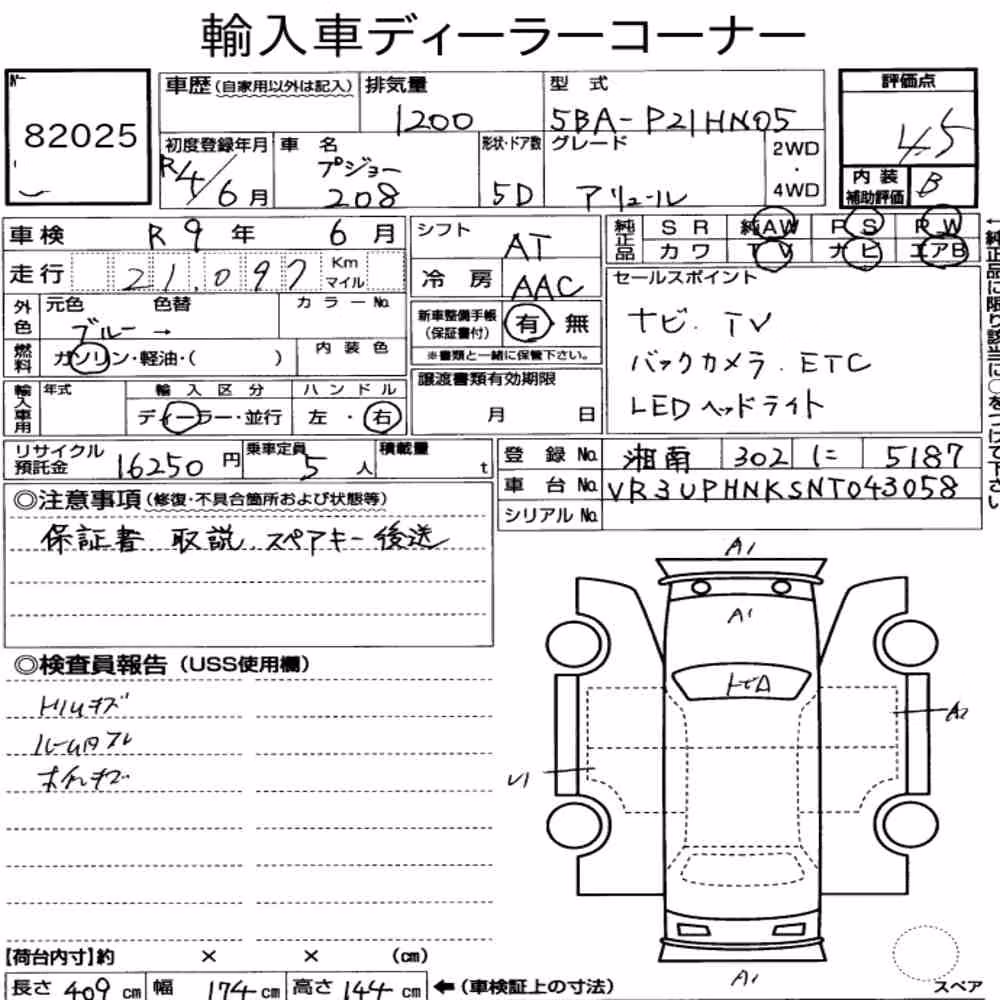 輸入車ディーラーコーナー
82025
車歴(自家用以外は記入) 排気量 1200 型式 5BA-P21HN05
評価点 4.5
初度登録年月 R4/6月 車名 プジョー 208 形状・ドア数 5D グレード アリュール 2WD・4WD
内装補助評価 B
車検 R9年 6月
走行 21,097 Km マイル
外色 元色 ブルー → 色替 カラーNo.
燃料 ガソリン・軽油・( ) 内装色
輸入車用 年式 輸入区分 ディーラー・並行 ハンドル 左・右
シフト AT
冷房 AAC
新車整備手帳(保証書付) 有 無
※書類と一緒に保管下さい。
譲渡書類有効期限
月 日
純正品 SR 純AW PS PW
カワ TV ナビ エアB
セールスポイント
ナビ. TV
バックカメラ. ETC
LEDヘッドライト
←純正品に限り該当に○をつけて下さい
リサイクル預託金 16250円 乗車定員 5人 積載量 t
登録No. 湘南 302 に 5187
車台No. VR3UPHNKSNT043058
シリアルNo.
◎注意事項(修復・不具合箇所および状態等)
保証書 取説. スペアキー 後送
◎検査員報告(USS使用欄)
ホイルキズ
A1
A1
A2
U1
A1
スペア
【荷台内寸】約 × × (cm)
長さ 409 cm 幅 174 cm 高さ 144 cm ←(車検証上の寸法)